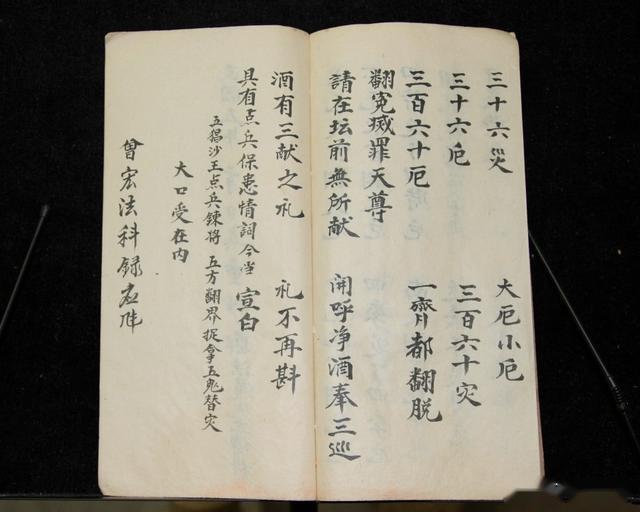 三十六災 大厄小厄
三十六厄 三百六十灾
三百六十厄 一齊都翻脱
翻冤滅罪天尊
請在坛前無所献 開呼净酒奉三巡
酒有三献之礼 礼不再斟
具有点兵保患情詞今当 宣白
五猖沙王点兵錬将 五方翻界捉拿五鬼替灾
大口受在内
曾宏法科録